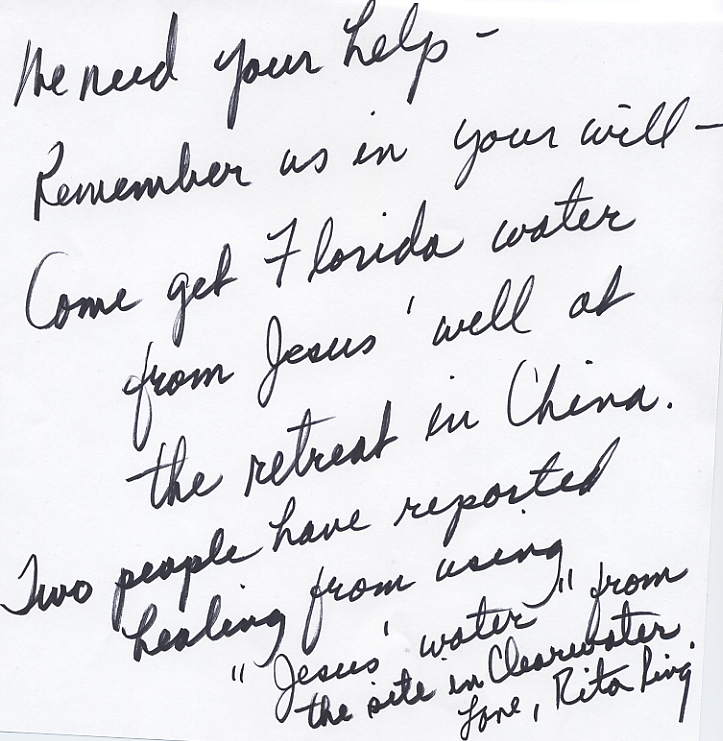 We need your help -
Remember us in your will -
Come get Florida water
from Jesus' well at
the retreat in China.
Two people have reported
healing from using
"Jesus' water" from
the site in Clearwater.
Love, Rita Ring